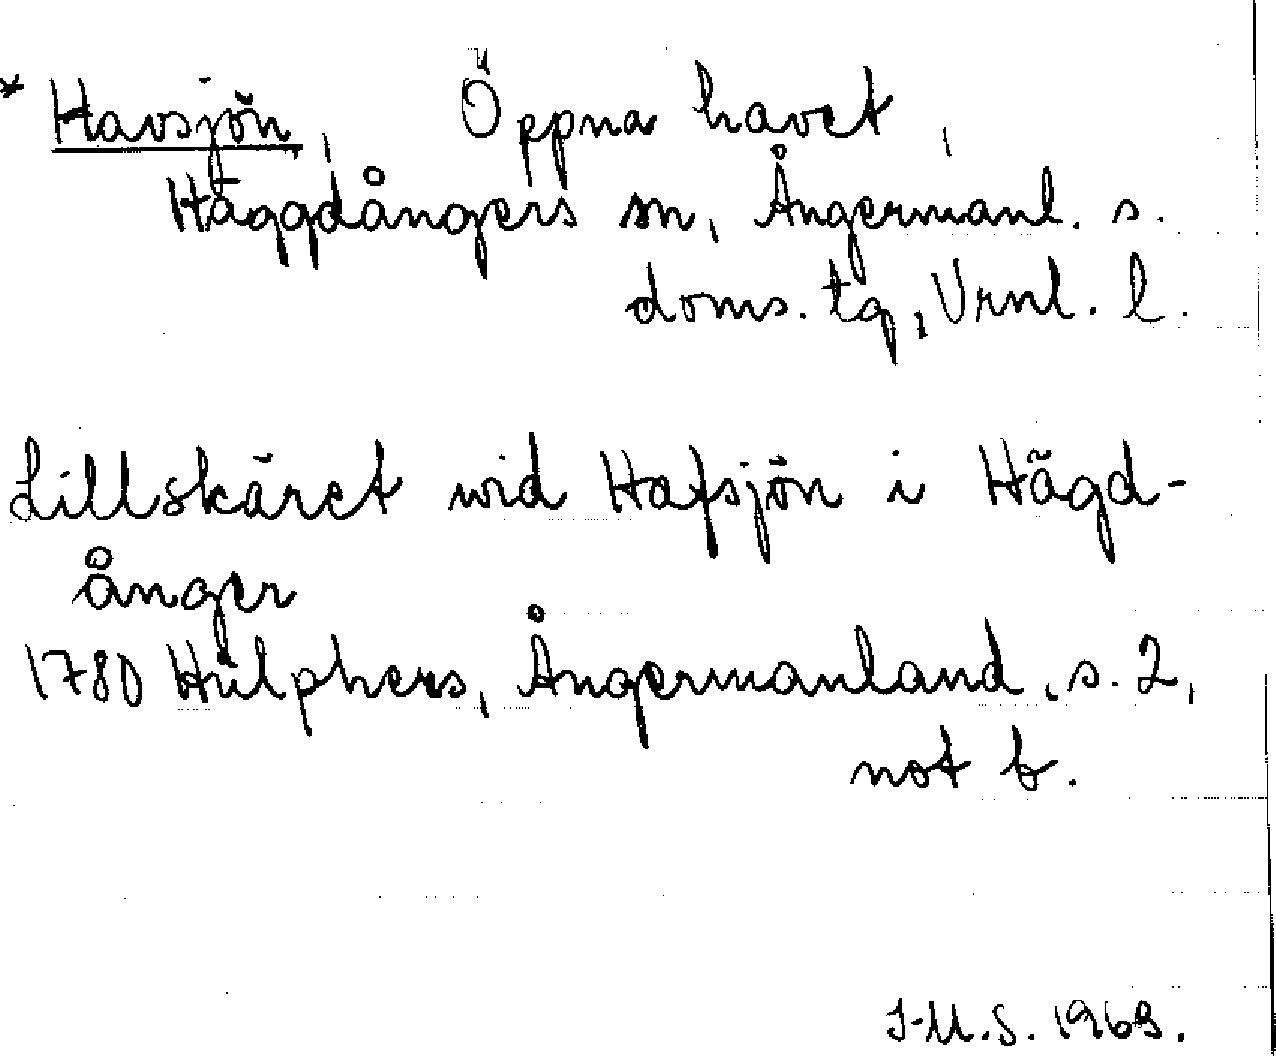 * Havsjön, Öppna havet,
Häggdångers sn, Ångermanl. s.
doms. tg, Vrnl. l.
Lillskäret wid Hafsjön i Hägd-
ånger
1780 Hülphers, Ångermanland, s. 2,
not b.
I-M.S. 1969.